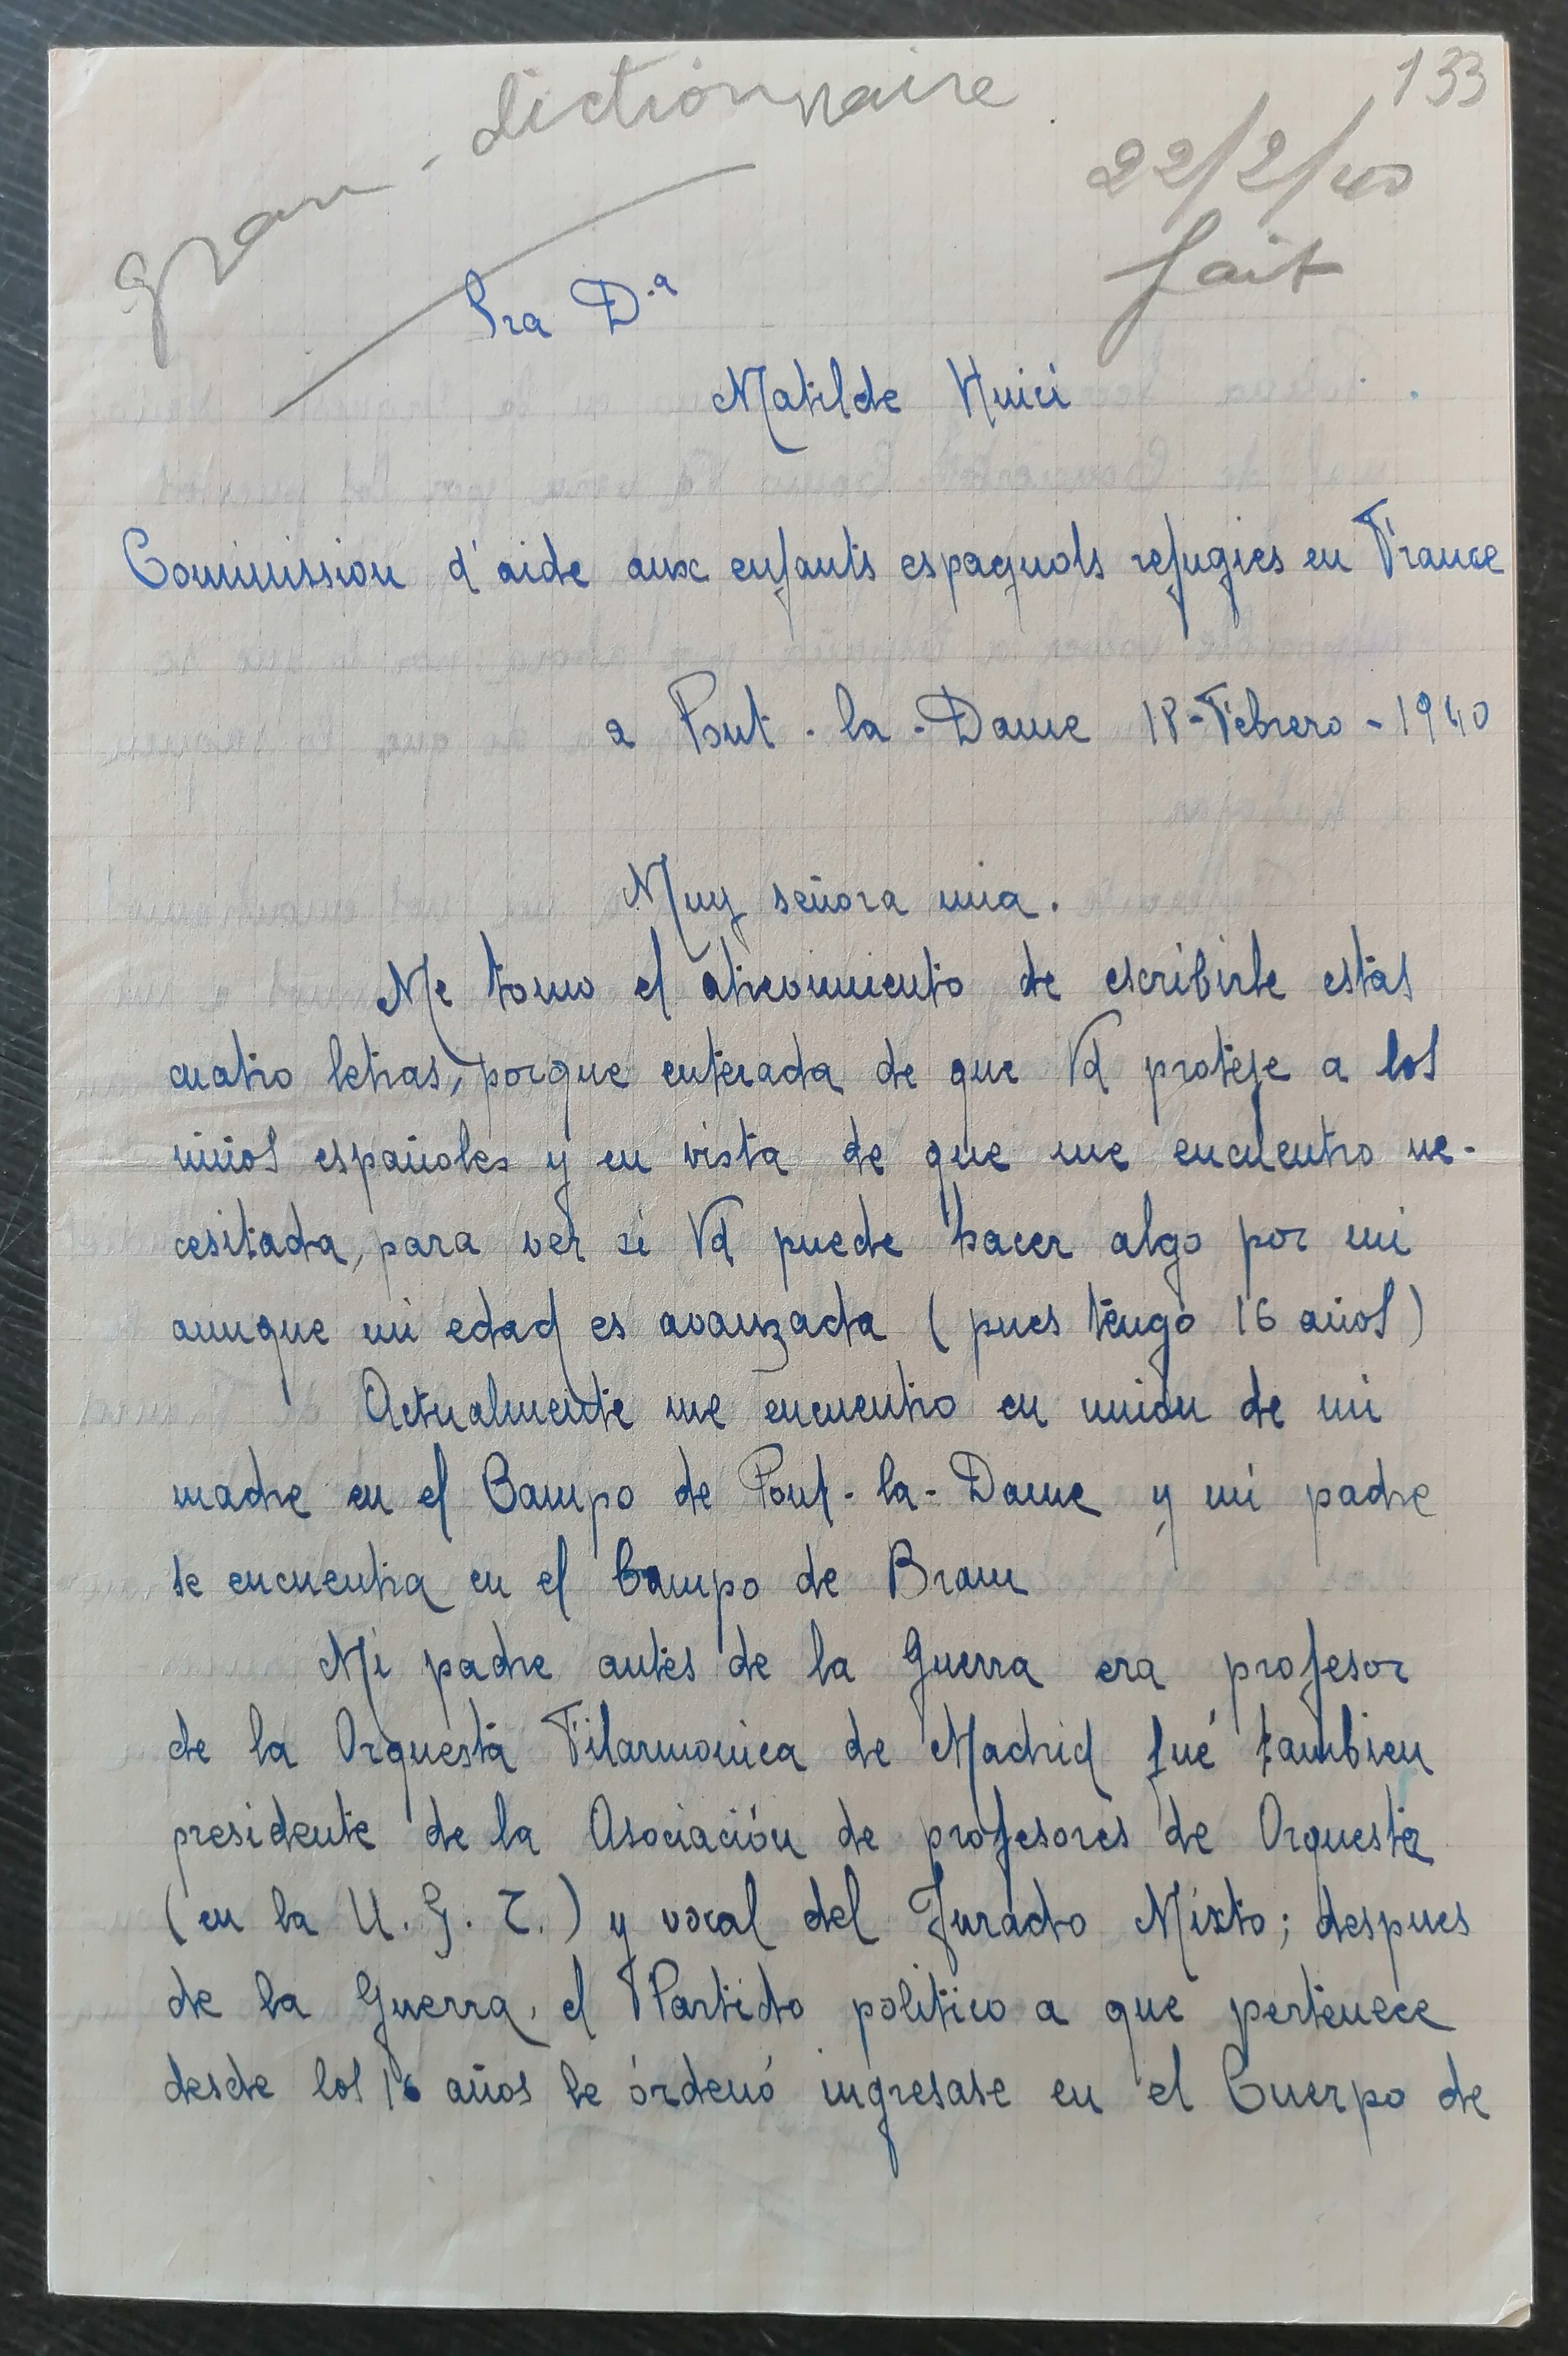 133
gran - dictionnaire
22/2/40
fait
Sra D.a
Matilde Huici
Commission d'aide aux enfants espagnols refugies en France
a Pont-la-Dame 18-Febrero-1940
Muy señora mia.
Me tomo el atrevimiento de escribirle estas
cuatro letras, porque enterada de que Vd proteje a los
niños españoles y en vista de que me encuentro ne-
cesitada, para ver si Vd puede hacer algo por mi
aunque mi edad es avanzada (pues tengo 16 años)
Actualmente me encuentro en unión de mi
madre en el Campo de Pont-la-Dame y mi padre
se encuentra en el Campo de Bram
Mi padre antes de la Guerra era profesor
de la Orquesta Filarmonica de Madrid fué tambien
presidente de la Asociación de profesores de Orquesta
(en la U.G.T.) y vocal del Jurado Mixto; despues
de la Guerra, el Partido politico a que pertenece
desde los 16 años le órdenó ingresase en el Cuerpo de